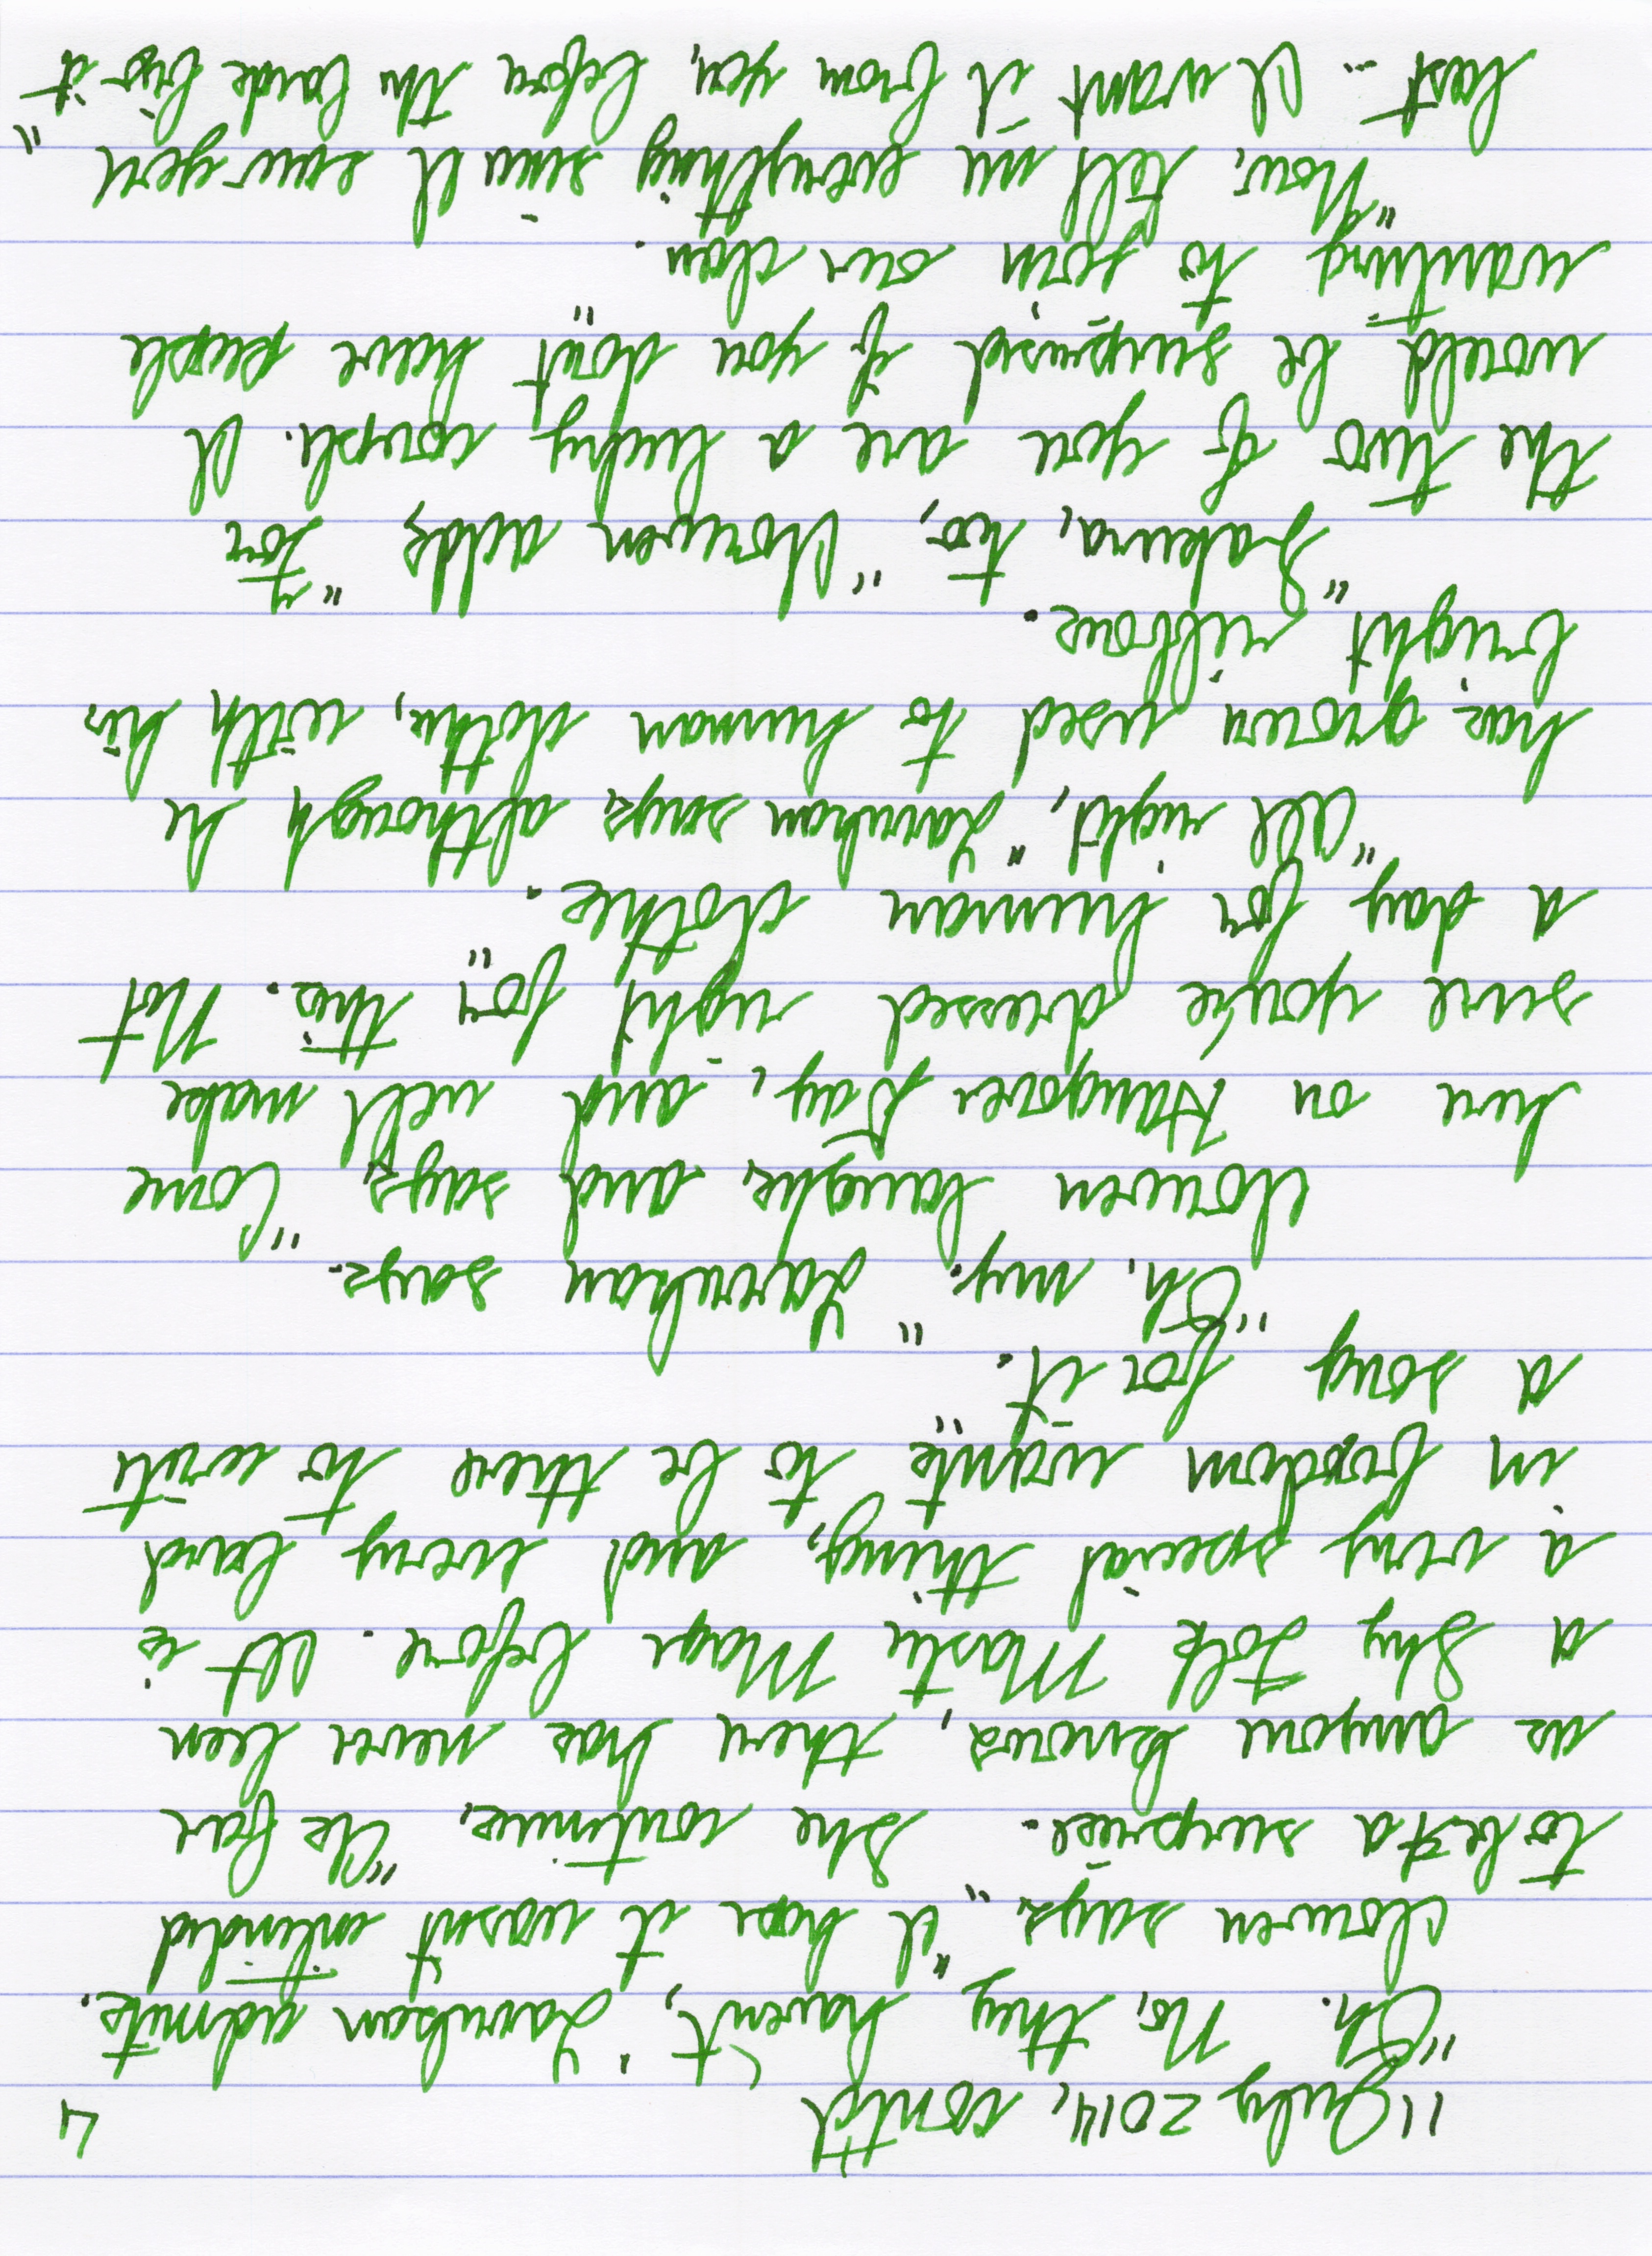 11 July 2014, cont'd 4
"Oh. No, they haven't," Larukan admits.
Clouwen says, "I hope it wasn't intended
to be a surprise." She continues, "As far
as anyone knows, there has never been
a Shy Folk Mastic Mage before. It is
a very special thing, and every bard
in birddom wants to be there to write
a song for it."
"Oh, my." Larukan says.
Clouwen laughs, and says, "Come
here on Hangover Day, and we'll make
sure you're dressed right for this. Not
a day for human clothes."
"All right," Larukan says, although he
has grown used to human clothes, with his
bright ribbons.
"Sakura, too," Clouwen adds, "For
the two of you are a lucky couple. I
would be surprised if you don't have people
wanting to join our clan."
"Now, tell me everything since I saw you
last – I want it from you, before the bards